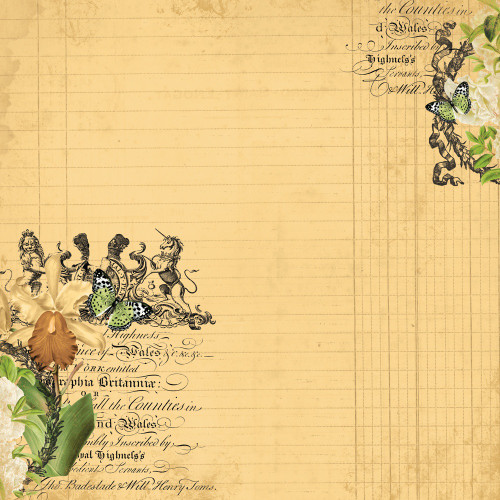 the Counties in
d Wales
Inscribed by
Highness's
Servants,
& Will. H
Highness
nce of Wales & c. &c. &c.
ORK entitled
raphia Britanniæ:
OR
all the Counties in
nd Wales
mbly Inscribed by
yal Highness's
edient Servants,
Tho. Badeslade & Will. Henry Toms.